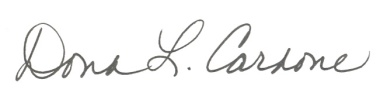 Dona L. Cardone